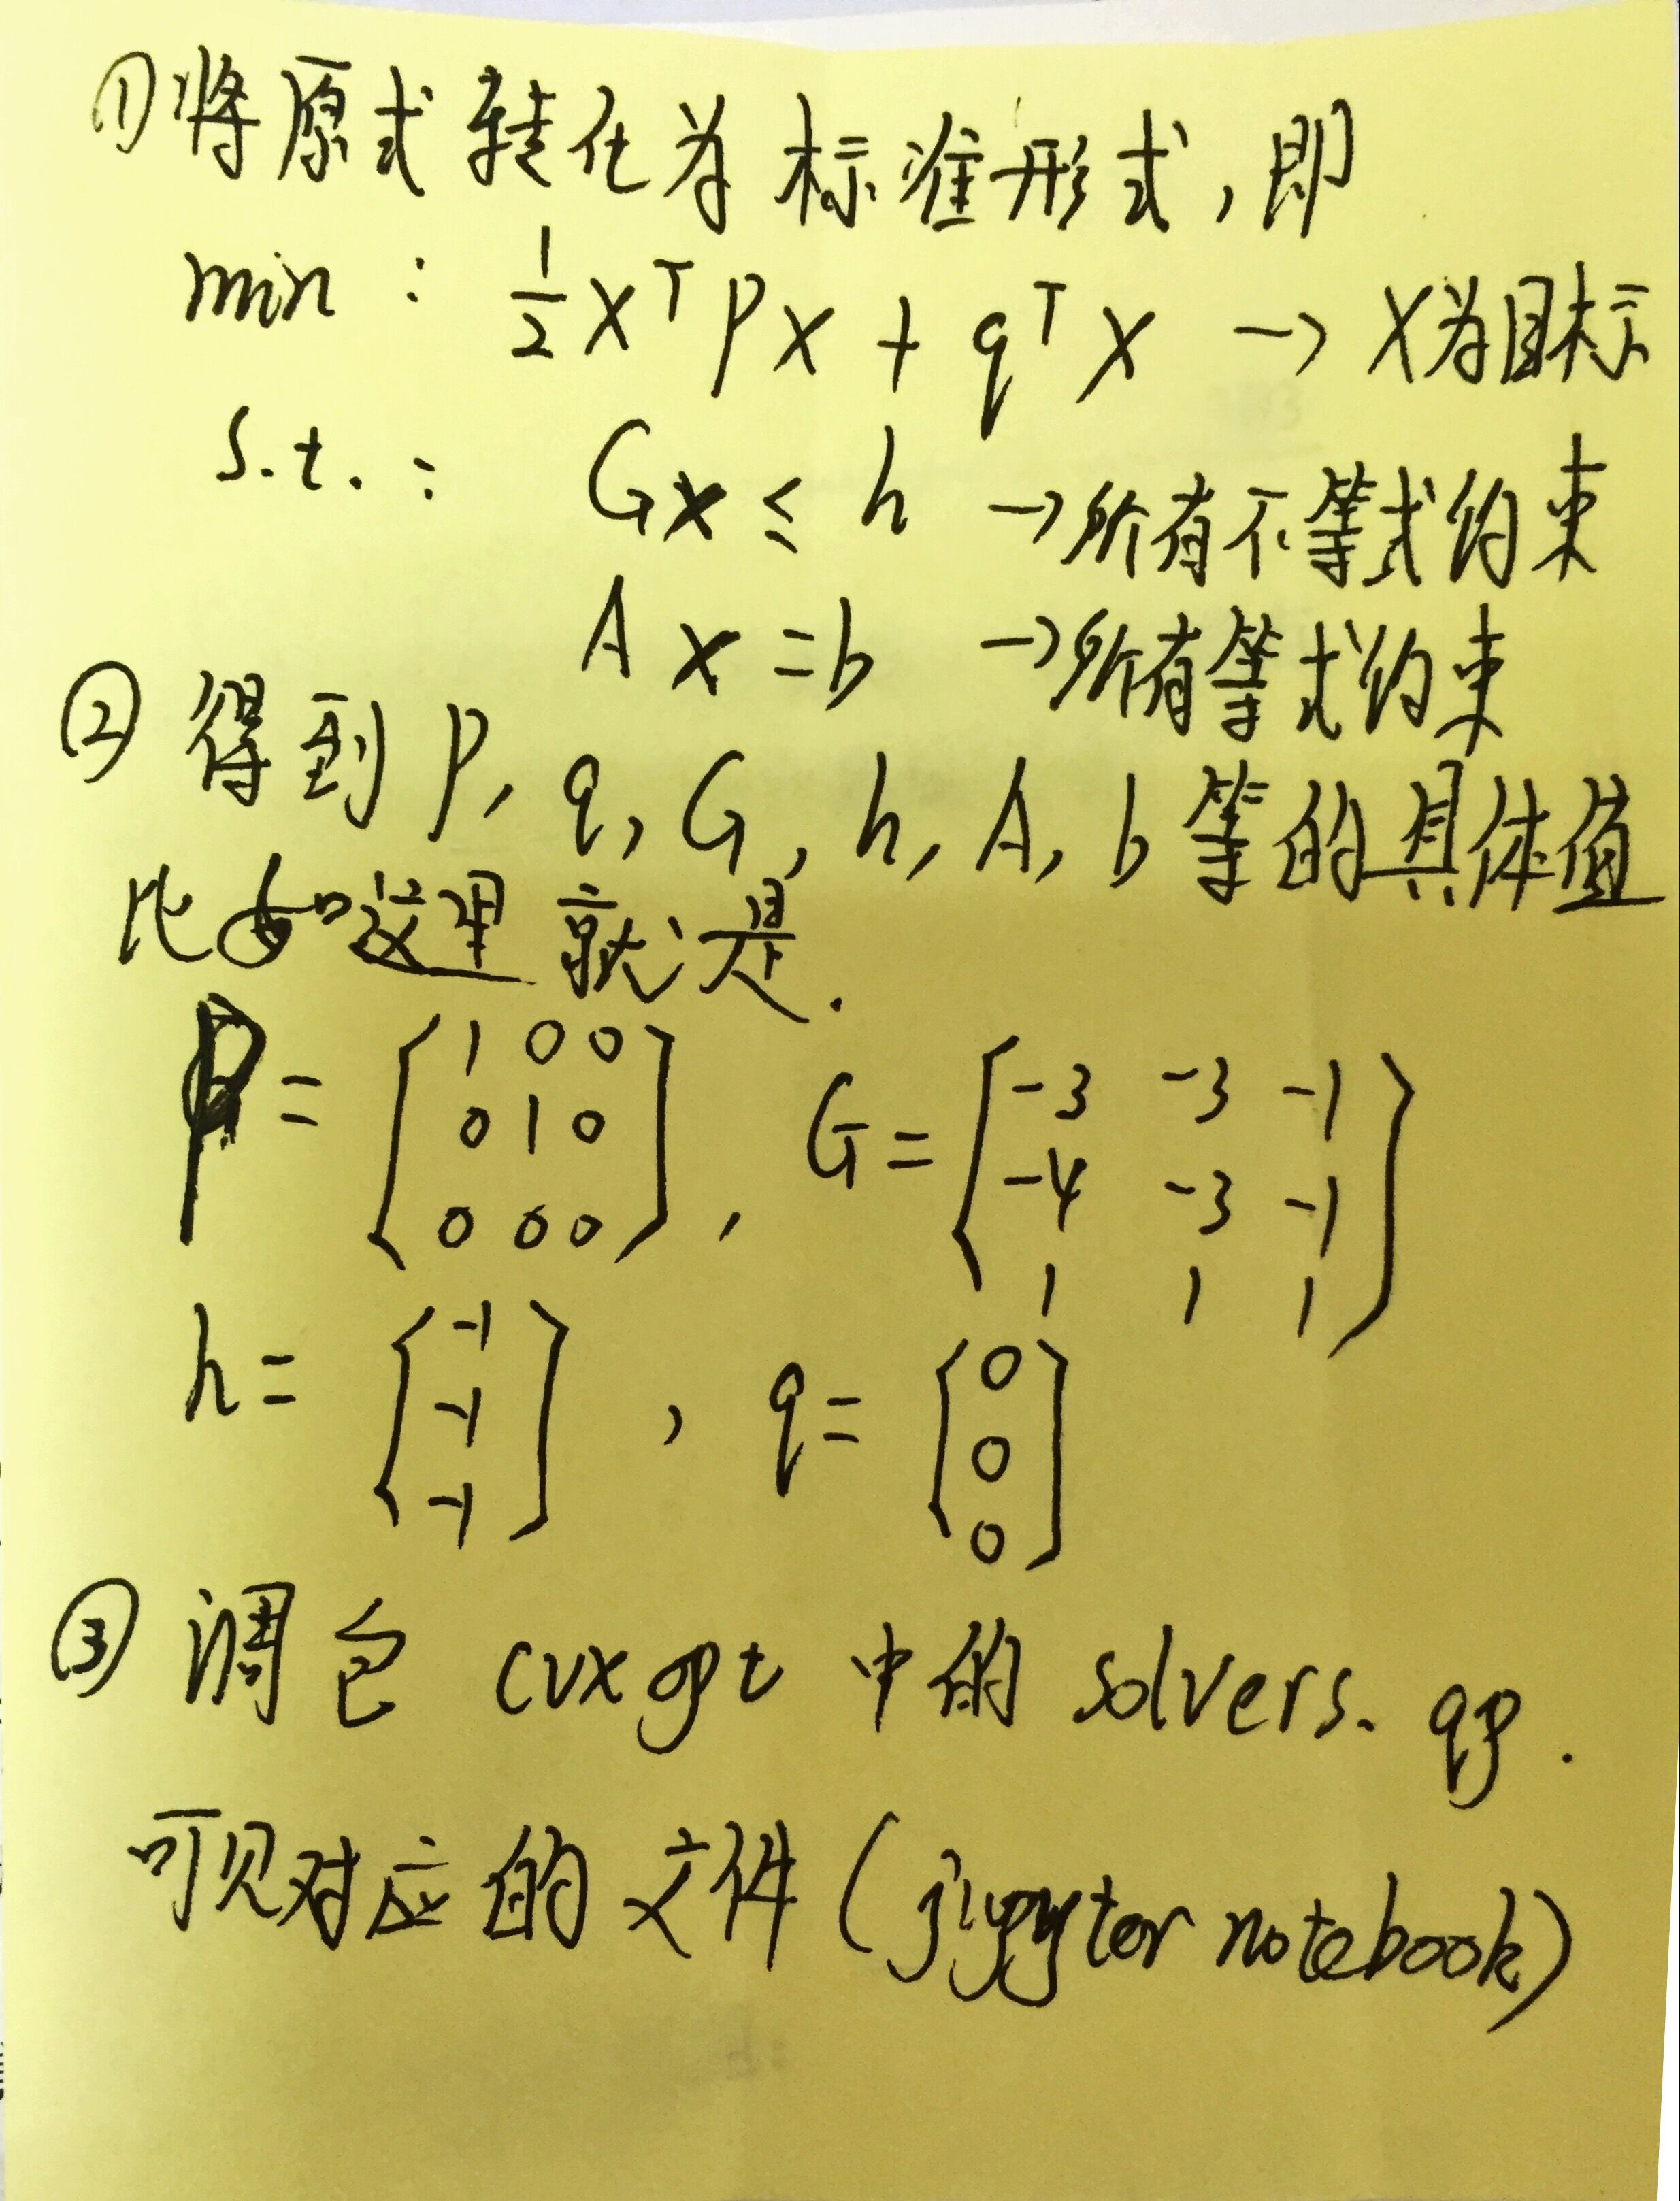 ①将原式转化为标准形式,即
min : 1/2 x^T P x + q^T x → x为目标
s.t. : Gx ≤ h → 所有不等式约束
A x = b → 所有等式约束
② 得到 P, q, G, h, A, b 等的具体值
比如这里就是.
P = [1 0 0; 0 1 0; 0 0 0], G = [-3 -3 -1; -4 -3 -1; 1 1 1]
h = [-1; -1; -1], q = [0; 0; 0]
③ 调包 cvxopt 中的 solvers. qp.
可见对应的文件 (jupyter notebook)